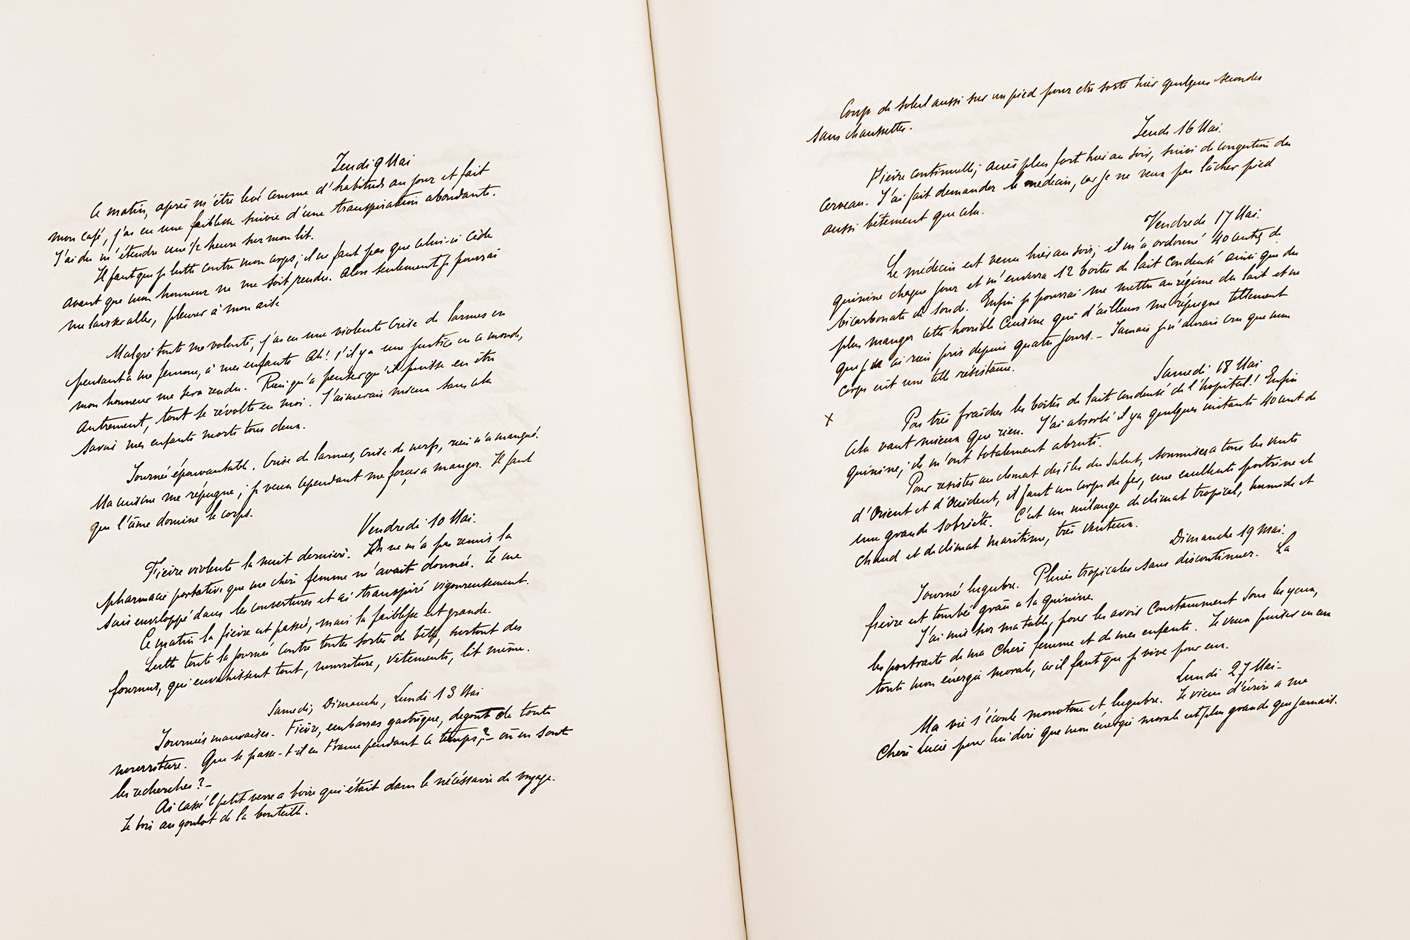 Jeudi 9 Mai
Ce matin, après m'être levé comme d'habitude au jour et fait
mon café, j'ai eu une faiblesse suivie d'une transpiration abondante.
J'ai dû m'étendre une ½ heure sur mon lit.
Il faut que je lutte contre mon corps; il ne faut pas que celui-ci cède
avant que mon honneur ne me soit rendu. Alors seulement je pourrai
me laisser aller, pleurer à mon aise.
Malgré toute ma volonté, j'ai eu une violente crise de larmes en
pensant à ma femme, à mes enfants. Ah! s'il y a une justice en ce monde,
mon honneur me sera rendu. Rien qu'à penser qu'il puisse en être
autrement, tout se révolte en moi. J'aimerais mieux sans cela
savoir mes enfants morts tous deux.
Journée épouvantable. Crise de larmes, crise de nerfs, rien n'a manqué.
Ma cuisine me répugne; je veux cependant me forcer à manger. Il faut
que l'âme domine le corps.
Vendredi 10 Mai.
Fièvre violente la nuit dernière. On ne m'a pas remis la
pharmacie portative que ma chère femme m'avait donnée. Je me
suis enveloppé dans les couvertures et ai transpiré vigoureusement.
Ce matin la fièvre est passée, mais la faiblesse est grande.
Lutté toute la journée contre toute sorte de bêtes, surtout des
fourmis, qui envahissent tout, nourriture, vêtements, lit même.
Samedi, Dimanche, Lundi 13 Mai
Journées mauvaises. Fièvre, embarras gastrique, dégoût de toute
nourriture. Que se passe-t-il en France pendant ce temps? – où en sont
les recherches? –
Ai cassé le petit verre à boire qui était dans le nécessaire de voyage.
Je bois au goulot de la bouteille.
Coup de soleil aussi sur un pied pour être sorti hier quelques secondes
sans chaussette.
Jeudi 16 Mai.
Fièvre continuelle; accès plus fort hier au soir, suivi de congestion du
cerveau. J'ai fait demander le médecin, car je ne veux pas lâcher pied
aussi bêtement que cela.
Vendredi 17 Mai.
Le médecin est venu hier au soir; il m'a ordonné 40 centig de
quinine chaque jour et m'enverra 12 boîtes de lait condensé ainsi que du
bicarbonate de soude. Enfin je pourrai me mettre au régime du lait et ne
plus manger cette horrible cuisine qui d'ailleurs me répugne tellement
que je n'ai rien pris depuis quatre jours. – Jamais je n'aurais cru que mon
corps eût une telle résistance.
Samedi 18 Mai
x Pas très fraîches les boîtes de lait condensé de l'hôpital! Enfin
cela vaut mieux que rien. J'ai absorbé il y a quelques instants 40 cent de
quinine; ils m'ont totalement abruti.
Pour résister au climat des îles du Salut, soumises à tous les vents
d'Orient et d'Occident, il faut un corps de fer, une excellente poitrine et
une grande sobriété. C'est un mélange de climat tropical, humide et
chaud et de climat maritime, très venteux.
Dimanche 19 Mai.
Journée lugubre. Pluie tropicale sans discontinuer. La
fièvre est tombée grâce à la quinine.
J'ai mis sur ma table, pour les avoir constamment sous les yeux,
les portraits de ma chère femme et de mes enfants. Je veux puiser en eux
toute mon énergie morale, car il faut que je vive pour eux.
Lundi 27 Mai –
Ma vie s'écoule monotone et lugubre. Je viens d'écrire à ma
chère Lucie pour lui dire que mon énergie morale est plus grande que jamais.